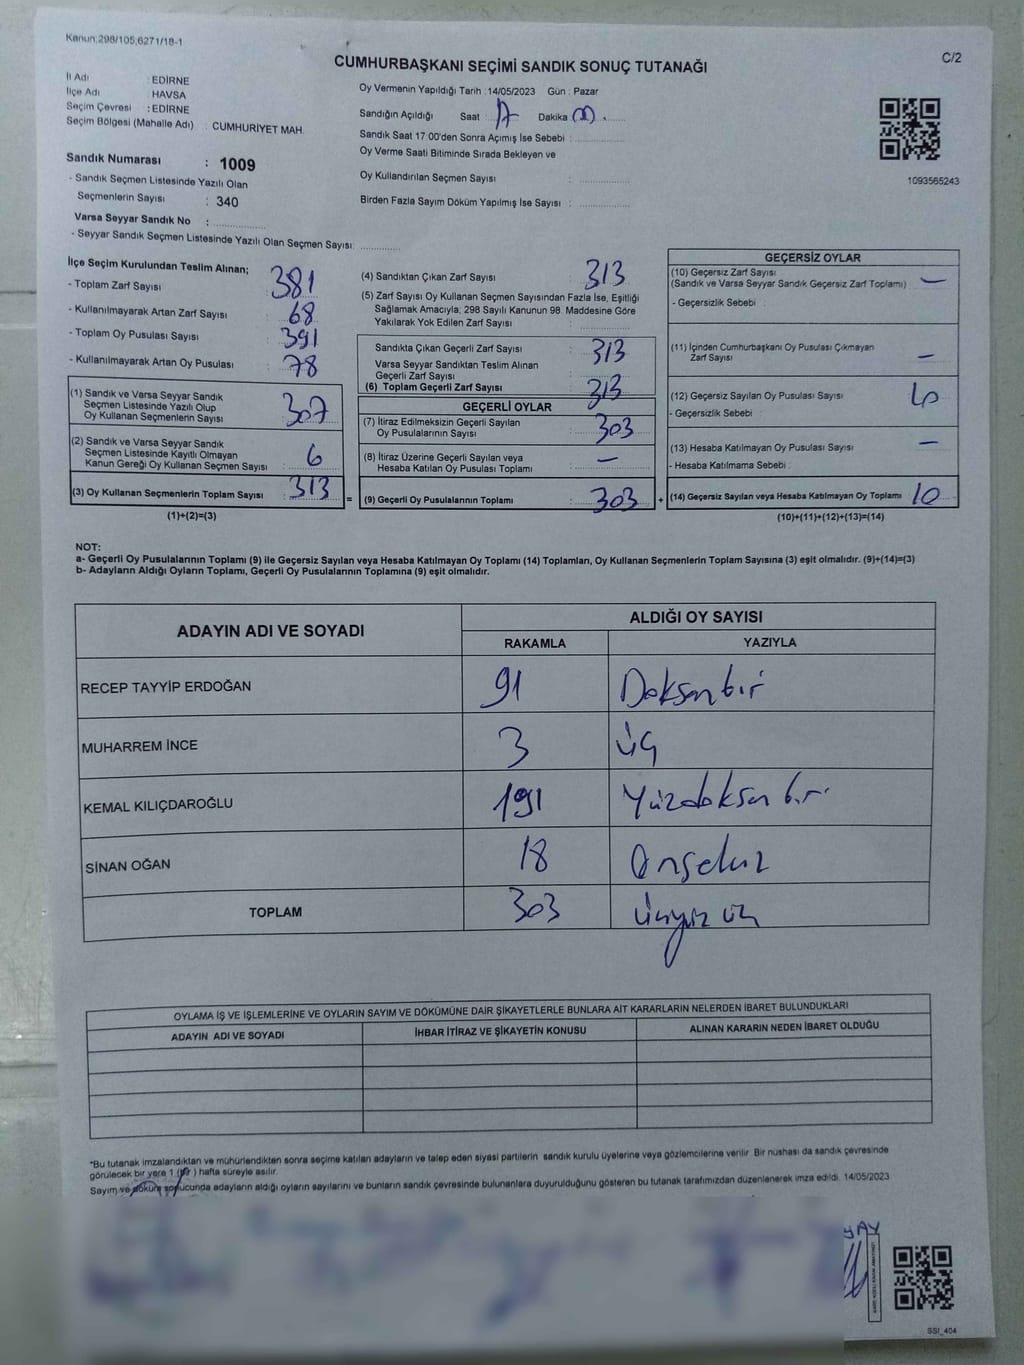 Kanun:298/105,6271/18-1
C/2
CUMHURBAŞKANI SEÇİMİ SANDIK SONUÇ TUTANAĞI
İl Adı : EDİRNE
İlçe Adı : HAVSA
Seçim Çevresi : EDİRNE
Seçim Bölgesi (Mahalle Adı) : CUMHURİYET MAH.
Oy Vermenin Yapıldığı Tarih :14/05/2023 Gün : Pazar
Sandığın Açıldığı Saat : 17 Dakika : 00
Sandık Saat 17:00'den Sonra Açımış İse Sebebi :
Oy Verme Saati Bitiminde Sırada Bekleyen ve
Oy Kullandırılan Seçmen Sayısı :
Birden Fazla Sayım Döküm Yapılmış İse Sayısı :
1093565243
Sandık Numarası : 1009
- Sandık Seçmen Listesinde Yazılı Olan
Seçmenlerin Sayısı : 340
Varsa Seyyar Sandık No :
- Seyyar Sandık Seçmen Listesinde Yazılı Olan Seçmen Sayısı:
İlçe Seçim Kurulundan Teslim Alınan;
- Toplam Zarf Sayısı : 381
- Kullanılmayarak Artan Zarf Sayısı : 68
- Toplam Oy Pusulası Sayısı : 391
- Kullanılmayarak Artan Oy Pusulası : 78
(1) Sandık ve Varsa Seyyar Sandık
Seçmen Listesinde Yazılı Olup
Oy Kullanan Seçmenlerin Sayısı : 307
(2) Sandık ve Varsa Seyyar Sandık
Seçmen Listesinde Kayıtlı Olmayan
Kanun Gereği Oy Kullanan Seçmen Sayısı : 6
(3) Oy Kullanan Seçmenlerin Toplam Sayısı : 313
(1)+(2)=(3)
(4) Sandıktan Çıkan Zarf Sayısı : 313
(5) Zarf Sayısı Oy Kullanan Seçmen Sayısından Fazla İse, Eşitliği
Sağlamak Amacıyla; 298 Sayılı Kanunun 98. Maddesine Göre
Yakılarak Yok Edilen Zarf Sayısı :
Sandıkta Çıkan Geçerli Zarf Sayısı : 313
Varsa Seyyar Sandıktan Teslim Alınan
Geçerli Zarf Sayısı :
(6) Toplam Geçerli Zarf Sayısı : 313
GEÇERLİ OYLAR
(7) İtiraz Edilmeksizin Geçerli Sayılan
Oy Pusulalarının Sayısı : 303
(8) İtiraz Üzerine Geçerli Sayılan veya
Hesaba Katılan Oy Pusulası Toplamı : —
= (9) Geçerli Oy Pusulalarının Toplamı : 303
GEÇERSİZ OYLAR
(10) Geçersiz Zarf Sayısı
(Sandık ve Varsa Seyyar Sandık Geçersiz Zarf Toplamı) : —
- Geçersizlik Sebebi :
(11) İçinden Cumhurbaşkanı Oy Pusulası Çıkmayan
Zarf Sayısı : —
(12) Geçersiz Sayılan Oy Pusulası Sayısı : 10
- Geçersizlik Sebebi :
(13) Hesaba Katılmayan Oy Pusulası Sayısı : —
- Hesaba Katılmama Sebebi :
+ (14) Geçersiz Sayılan veya Hesaba Katılmayan Oy Toplamı : 10
(10)+(11)+(12)+(13)=(14)
NOT:
a- Geçerli Oy Pusulalarının Toplamı (9) ile Geçersiz Sayılan veya Hesaba Katılmayan Oy Toplamı (14) Toplamları, Oy Kullanan Seçmenlerin Toplam Sayısına (3) eşit olmalıdır. (9)+(14)=(3)
b- Adayların Aldığı Oyların Toplamı, Geçerli Oy Pusulalarının Toplamına (9) eşit olmalıdır.
ADAYIN ADI VE SOYADI
ALDIĞI OY SAYISI
RAKAMLA YAZIYLA
RECEP TAYYİP ERDOĞAN 91 Doksan bir
MUHARREM İNCE 3 üç
KEMAL KILIÇDAROĞLU 191 Yüzdoksan bir
SİNAN OĞAN 18 Onsekiz
TOPLAM 303 üçyüz üç
OYLAMA İŞ VE İŞLEMLERİNE VE OYLARIN SAYIM VE DÖKÜMÜNE DAİR ŞİKAYETLERLE BUNLARA AİT KARARLARIN NELERDEN İBARET BULUNDUKLARI
ADAYIN ADI VE SOYADI İHBAR İTİRAZ VE ŞİKAYETİN KONUSU ALINAN KARARIN NEDEN İBARET OLDUĞU
*Bu tutanak imzalandıktan ve mühürlendikten sonra seçime katılan adayların ve talep eden siyasi partilerin sandık kurulu üyelerine veya gözlemcilerine verilir. Bir nushası da sandık çevresinde
görülecek bir yere 1 (bir) hafta süreyle asılır.
Sayım ve döküm sonucunda adayların aldığı oyların sayılarını ve bunların sandık çevresinde bulunanlara duyurulduğunu gösteren bu tutanak tarafımızdan düzenlenerek imza edildi. 14/05/2023
SSI_404